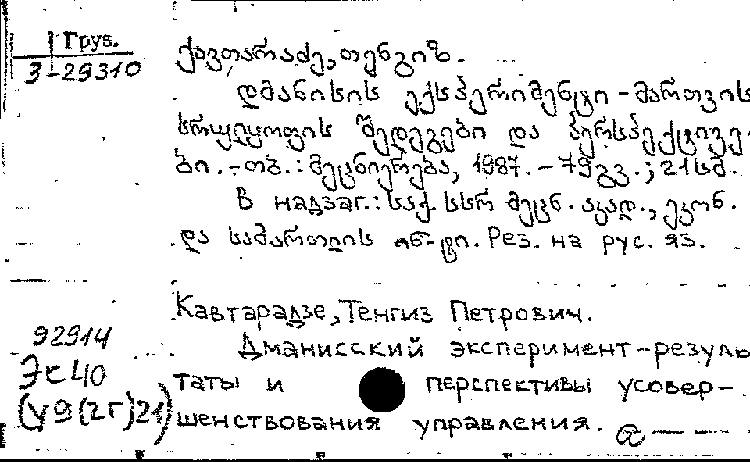 Груз.
3-29310
ქავთარაძე, თენგიზ.
დმანისის ექსპერიმენტი - მართვის
სრულყოფის შედეგები და პერსპექტივე-
ბი. - თბ.: მეცნიერება, 1987. - 79 გვ.; 21 სმ.
В надзаг.: საქ. სსრ მეცნ. აკად., ეკონ.
და სამართლის ინ-ტი. Рез. на рус. яз.
Кавтарадзе, Тенгиз Петрович.
92914
Дманисский эксперимент-резуль
Эк40
таты и перспективы усовер-
(У9(2Г)21)
шенствования управления.